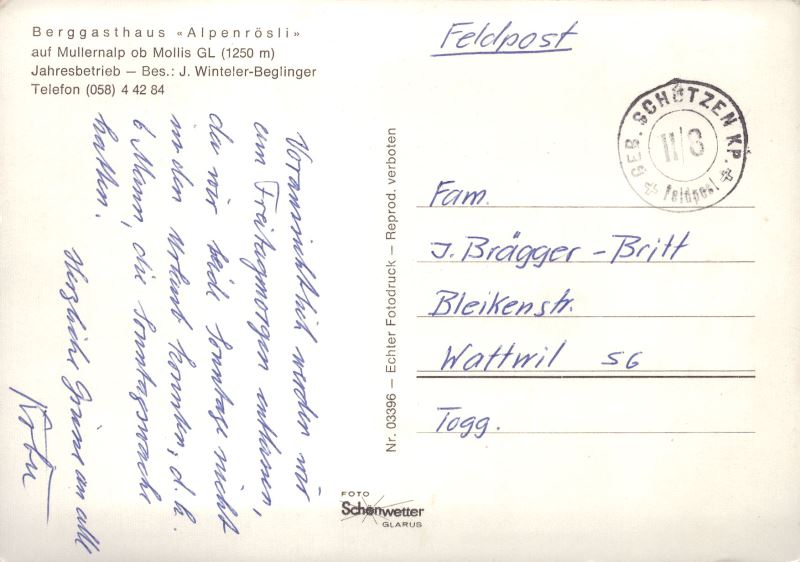 Berggasthaus «Alpenrösli»
auf Mullernalp ob Mollis GL (1250 m)
Jahresbetrieb – Bes.: J. Winteler-Beglinger
Telefon (058) 4 42 84
Voraussichtlich werden wir
am Freitagmorgen entlassen,
da wir beide Sonntage nicht
in den Urlaub konnten, d.h.
6 Mann, die Sonntagswache
hatten.
Herzliche Grüsse an alle
Nr. 03396 – Echter Fotodruck – Reprod. verboten
FOTO
Schönwetter
GLARUS
Feldpost
GEB. SCHÜTZEN KP.
II/8
Feldpost
Fam.
J. Brägger - Britt
Bleikenstr.
Wattwil SG
Togg.